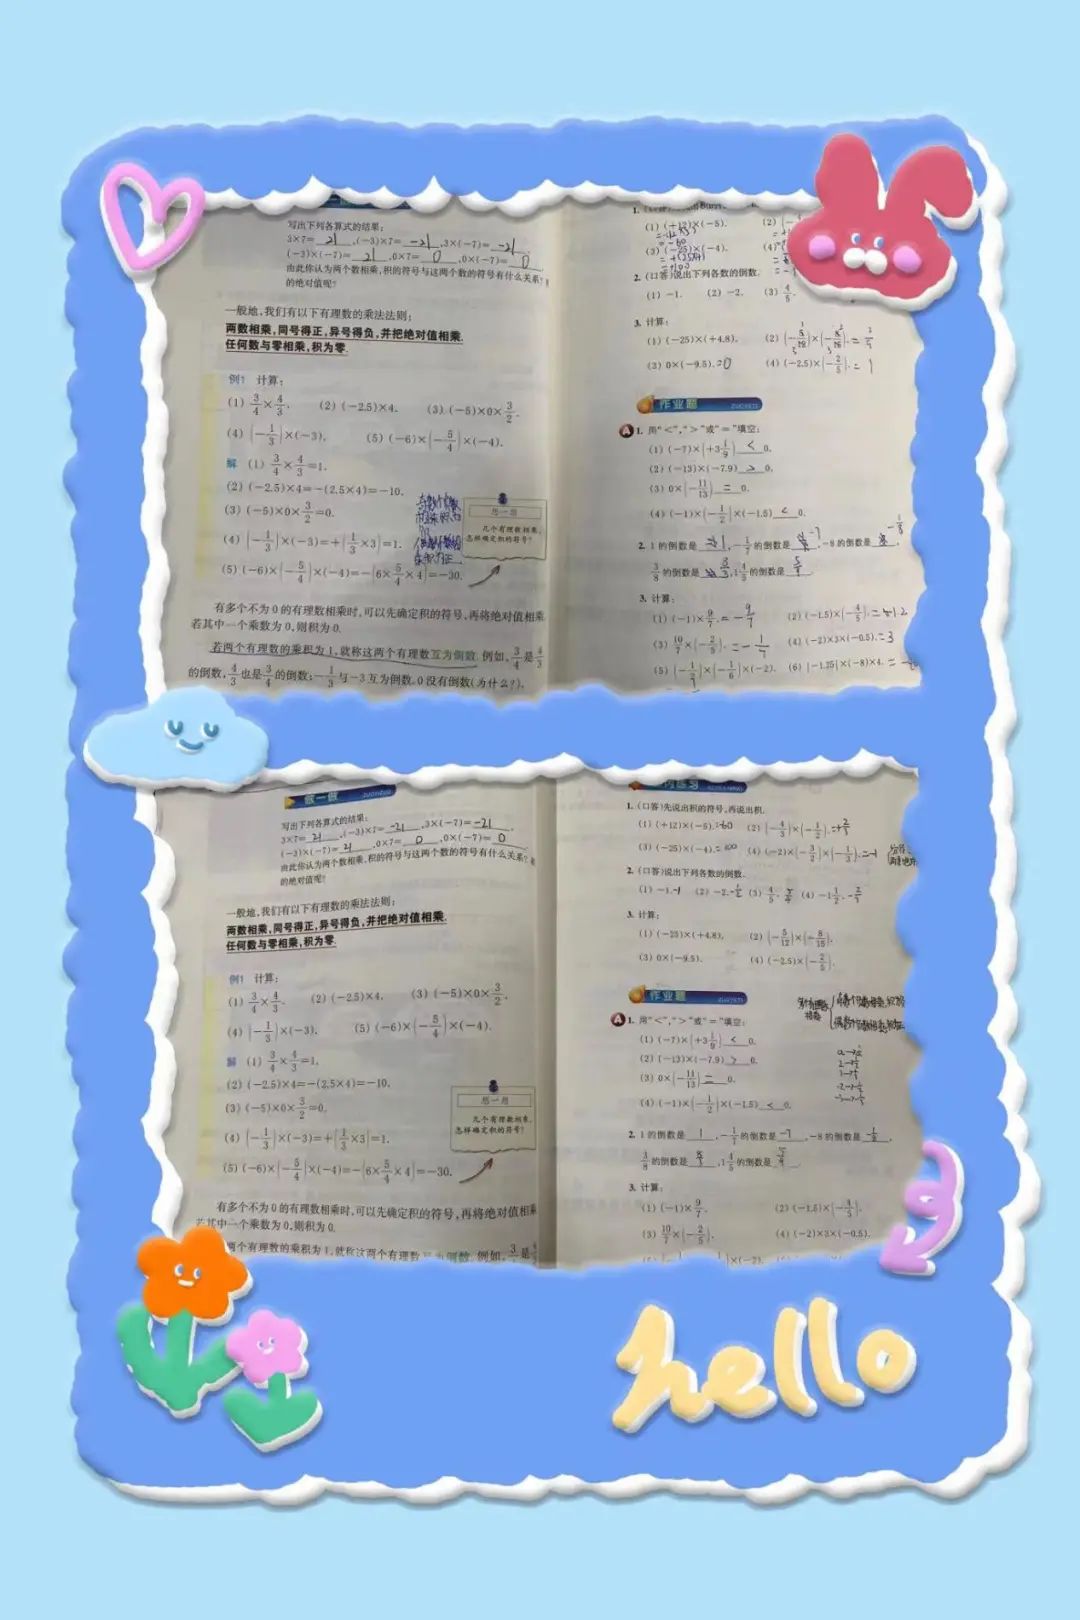 写出下列各算式的结果:
3×7= 21 ,(-3)×7= -21 ,3×(-7)= -21 ,
(-3)×(-7)= 21 ,0×7= 0 ,0×(-7)= 0 .
由此你认为两个数相乘,积的符号与这两个数的符号有什么关系?
的绝对值呢?
一般地,我们有以下有理数的乘法法则:
两数相乘,同号得正,异号得负,并把绝对值相乘.
任何数与零相乘,积为零.
例1 计算:
(1) 3/4×4/3. (2) (-2.5)×4. (3) (-5)×0×3/2.
(4) (-1/3)×(-3). (5) (-6)×(-5/4)×(-4).
解 (1) 3/4×4/3=1.
(2) (-2.5)×4=-(2.5×4)=-10.
(3) (-5)×0×3/2=0.
(4) (-1/3)×(-3)=+(1/3×3)=1.
(5) (-6)×(-5/4)×(-4)=-(6×5/4×4)=-30.
想一想
几个有理数相乘,
怎样确定积的符号?
有多个不为0的有理数相乘时,可以先确定积的符号,再将绝对值相乘
若其中一个乘数为0,则积为0.
若两个有理数的乘积为1,就称这两个有理数互为倒数.例如,3/4是4/3
的倒数,4/3也是3/4的倒数;-1/3与-3互为倒数.0没有倒数(为什么?).
(1) (+12)×(-5).
=-60
(3) (-25)×(-4).
=+100
2. (口答)说出下列各数的倒数.
(1) -1. (2) -2. (3) 4/5.
3. 计算:
(1) (-25)×(+4.8).
(3) 0×(-9.5). =0 (4) (-2.5)×(-2/5). = 1
作业题 ZUOYETI
A 1. 用“<”,“>”或“=”填空:
(1) (-7)×(+3 1/9) < 0.
(2) (-13)×(-7.9) > 0.
(3) 0×(-11/13) = 0.
(4) (-1)×(-1/2)×(-1.5) < 0.
2. 1的倒数是 1 ,-1/7的倒数是 -7 ,-8的倒数是 -1/8 ,
3/8的倒数是 8/3 ,1 4/5的倒数是 5/9 .
3. 计算:
(1) (-1)×9/7. =-9/7 (2) (-1.5)×(-4/5).
(3) 10/7×(-2/5). (4) (-2)×3×(-0.5). =3
(5) (-1/2)×(-1/6)×(-2). (6) |-1.25|×(-8)×4.
做一做 ZUOYIZUO
写出下列各算式的结果:
3×7= 21 ,(-3)×7= -21 ,3×(-7)= -21 ,
(-3)×(-7)= 21 ,0×7= 0 ,0×(-7)= 0 .
由此你认为两个数相乘,积的符号与这两个数的符号有什么关系?
的绝对值呢?
一般地,我们有以下有理数的乘法法则:
两数相乘,同号得正,异号得负,并把绝对值相乘.
任何数与零相乘,积为零.
例1 计算:
(1) 3/4×4/3. (2) (-2.5)×4. (3) (-5)×0×3/2.
(4) (-1/3)×(-3). (5) (-6)×(-5/4)×(-4).
解 (1) 3/4×4/3=1.
(2) (-2.5)×4=-(2.5×4)=-10.
(3) (-5)×0×3/2=0.
(4) (-1/3)×(-3)=+(1/3×3)=1.
(5) (-6)×(-5/4)×(-4)=-(6×5/4×4)=-30.
想一想
几个有理数相乘,
怎样确定积的符号?
有多个不为0的有理数相乘时,可以先确定积的符号,再将绝对值相乘
若其中一个乘数为0,则积为0.
两个有理数的乘积为1,就称这两个有理数互为倒数.例如,
1. (口答)先说出积的符号,再说出积.
(1) (+12)×(-5). -60 (2) (-4/3)×(-1/2). +2/3
(3) (-25)×(-4). =100 (4) (-2)×(-3/2)×(-1/3). =-1
2. (口答)说出下列各数的倒数.
(1) -1. -1 (2) -2. -1/2 (3) 4/5. 5/4 (4) -1 1/2. -2/3
3. 计算:
(1) (-25)×(+4.8). (2) (-5/12)×(-8/15).
(3) 0×(-9.5). (4) (-2.5)×(-2/5).
作业题 ZUOYETI
A 1. 用“<”,“>”或“=”填空:
(1) (-7)×(+3 1/9) < 0.
(2) (-13)×(-7.9) > 0.
(3) 0×(-11/13) = 0.
(4) (-1)×(-1/2)×(-1.5) < 0.
2. 1的倒数是 1 ,-1/7的倒数是 -7 ,-8的倒数是
3/8的倒数是 8/3 ,1 4/5的倒数是 5/9 .
3. 计算:
(1) (-1)×9/7. (2) (-1.5)×(-4/5).
(3) 10/7×(-2/5). (4) (-2)×3×(-0.5).
hello